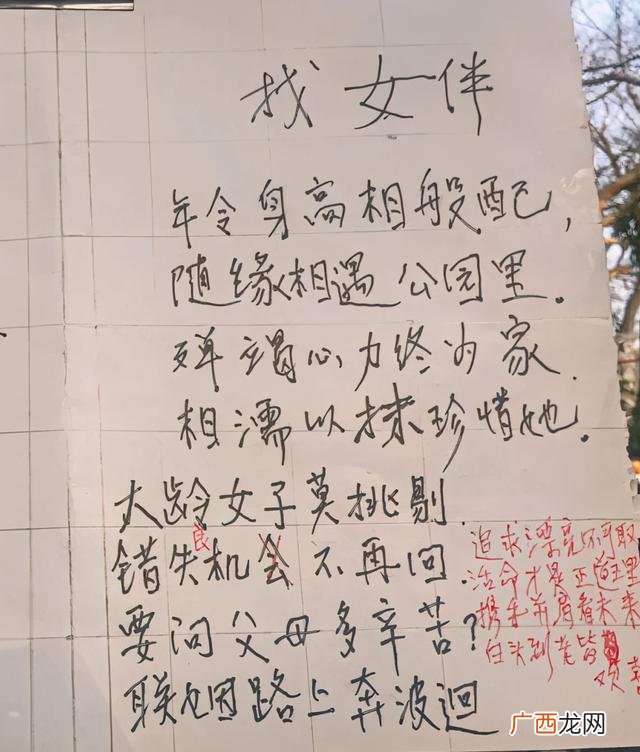 找女伴
年令身高相般配,
随缘相遇公园里.
殚竭心力终为家.
相濡以抹珍惜她.
大龄女子莫挑剔.
错失良机会不再回.
要问父母多辛苦?
联姻路上奔波迴
追求漂亮不可取
活命才是正道理
携手并肩看未来
白头到老皆欢喜
广西龙网